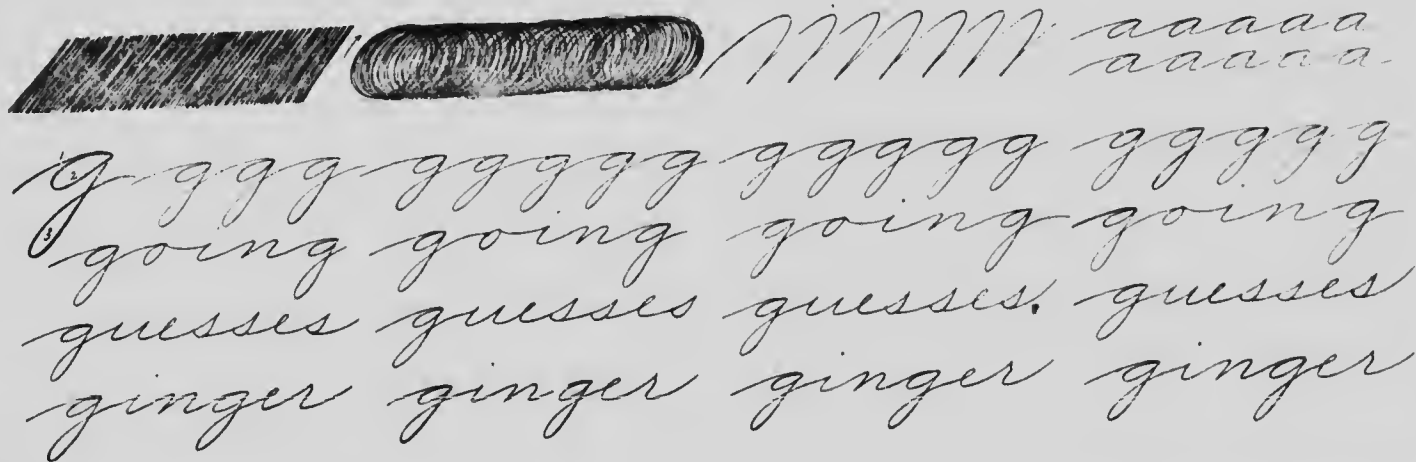 aaaaa
aaaaa
g ggg ggggg ggggg ggggg
going going going going
guesses guesses guesses. guesses
ginger ginger ginger ginger